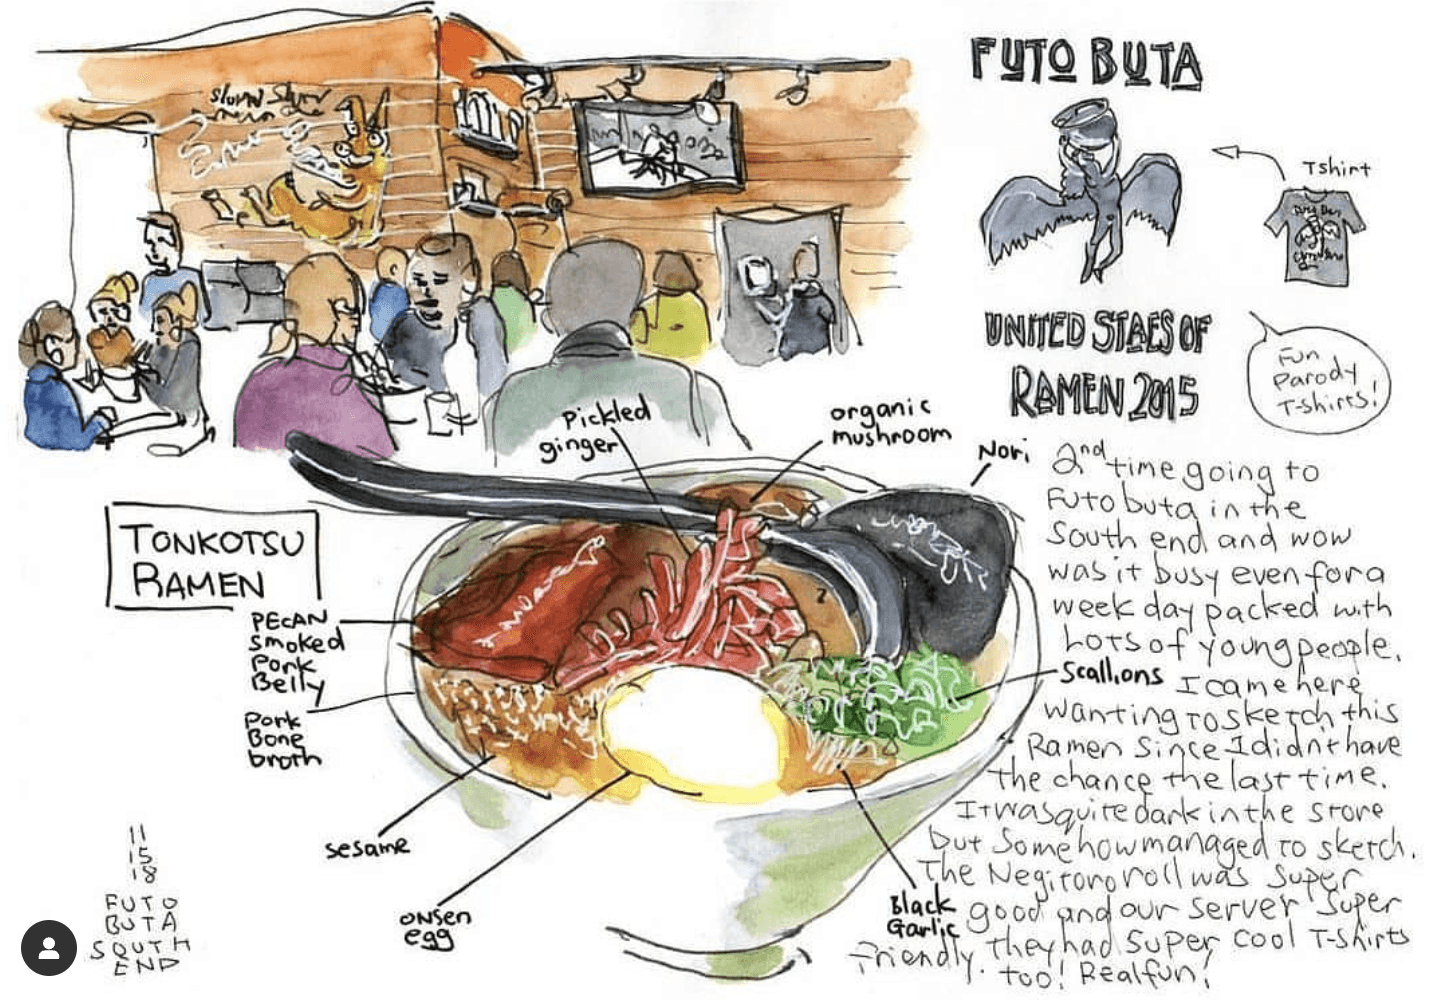 FUTO BUTA
Tshirt
UNITED STAES OF
RAMEN 2015
Fun
Parody
T-shirts!
Pickled
ginger
organic
mushroom
Nori
TONKOTSU
RAMEN
PECAN
Smoked
Pork
Belly
Pork
Bone
broth
sesame
onsen
egg
Scallions
Black
Garlic
2nd time going to
Futo buta in the
South end and wow
was it busy even for a
week day packed with
Lots of young people.
I came here
wanting to sketch this
Ramen since I didnt have
the chance the last time.
It was quite dark in the store
but somehow managed to sketch.
The Negitoro roll was super
good and our server super
friendly. they had super cool T-shirts
too! Real fun!
11
15
18
FUTO
BUTA
SOUTH
END